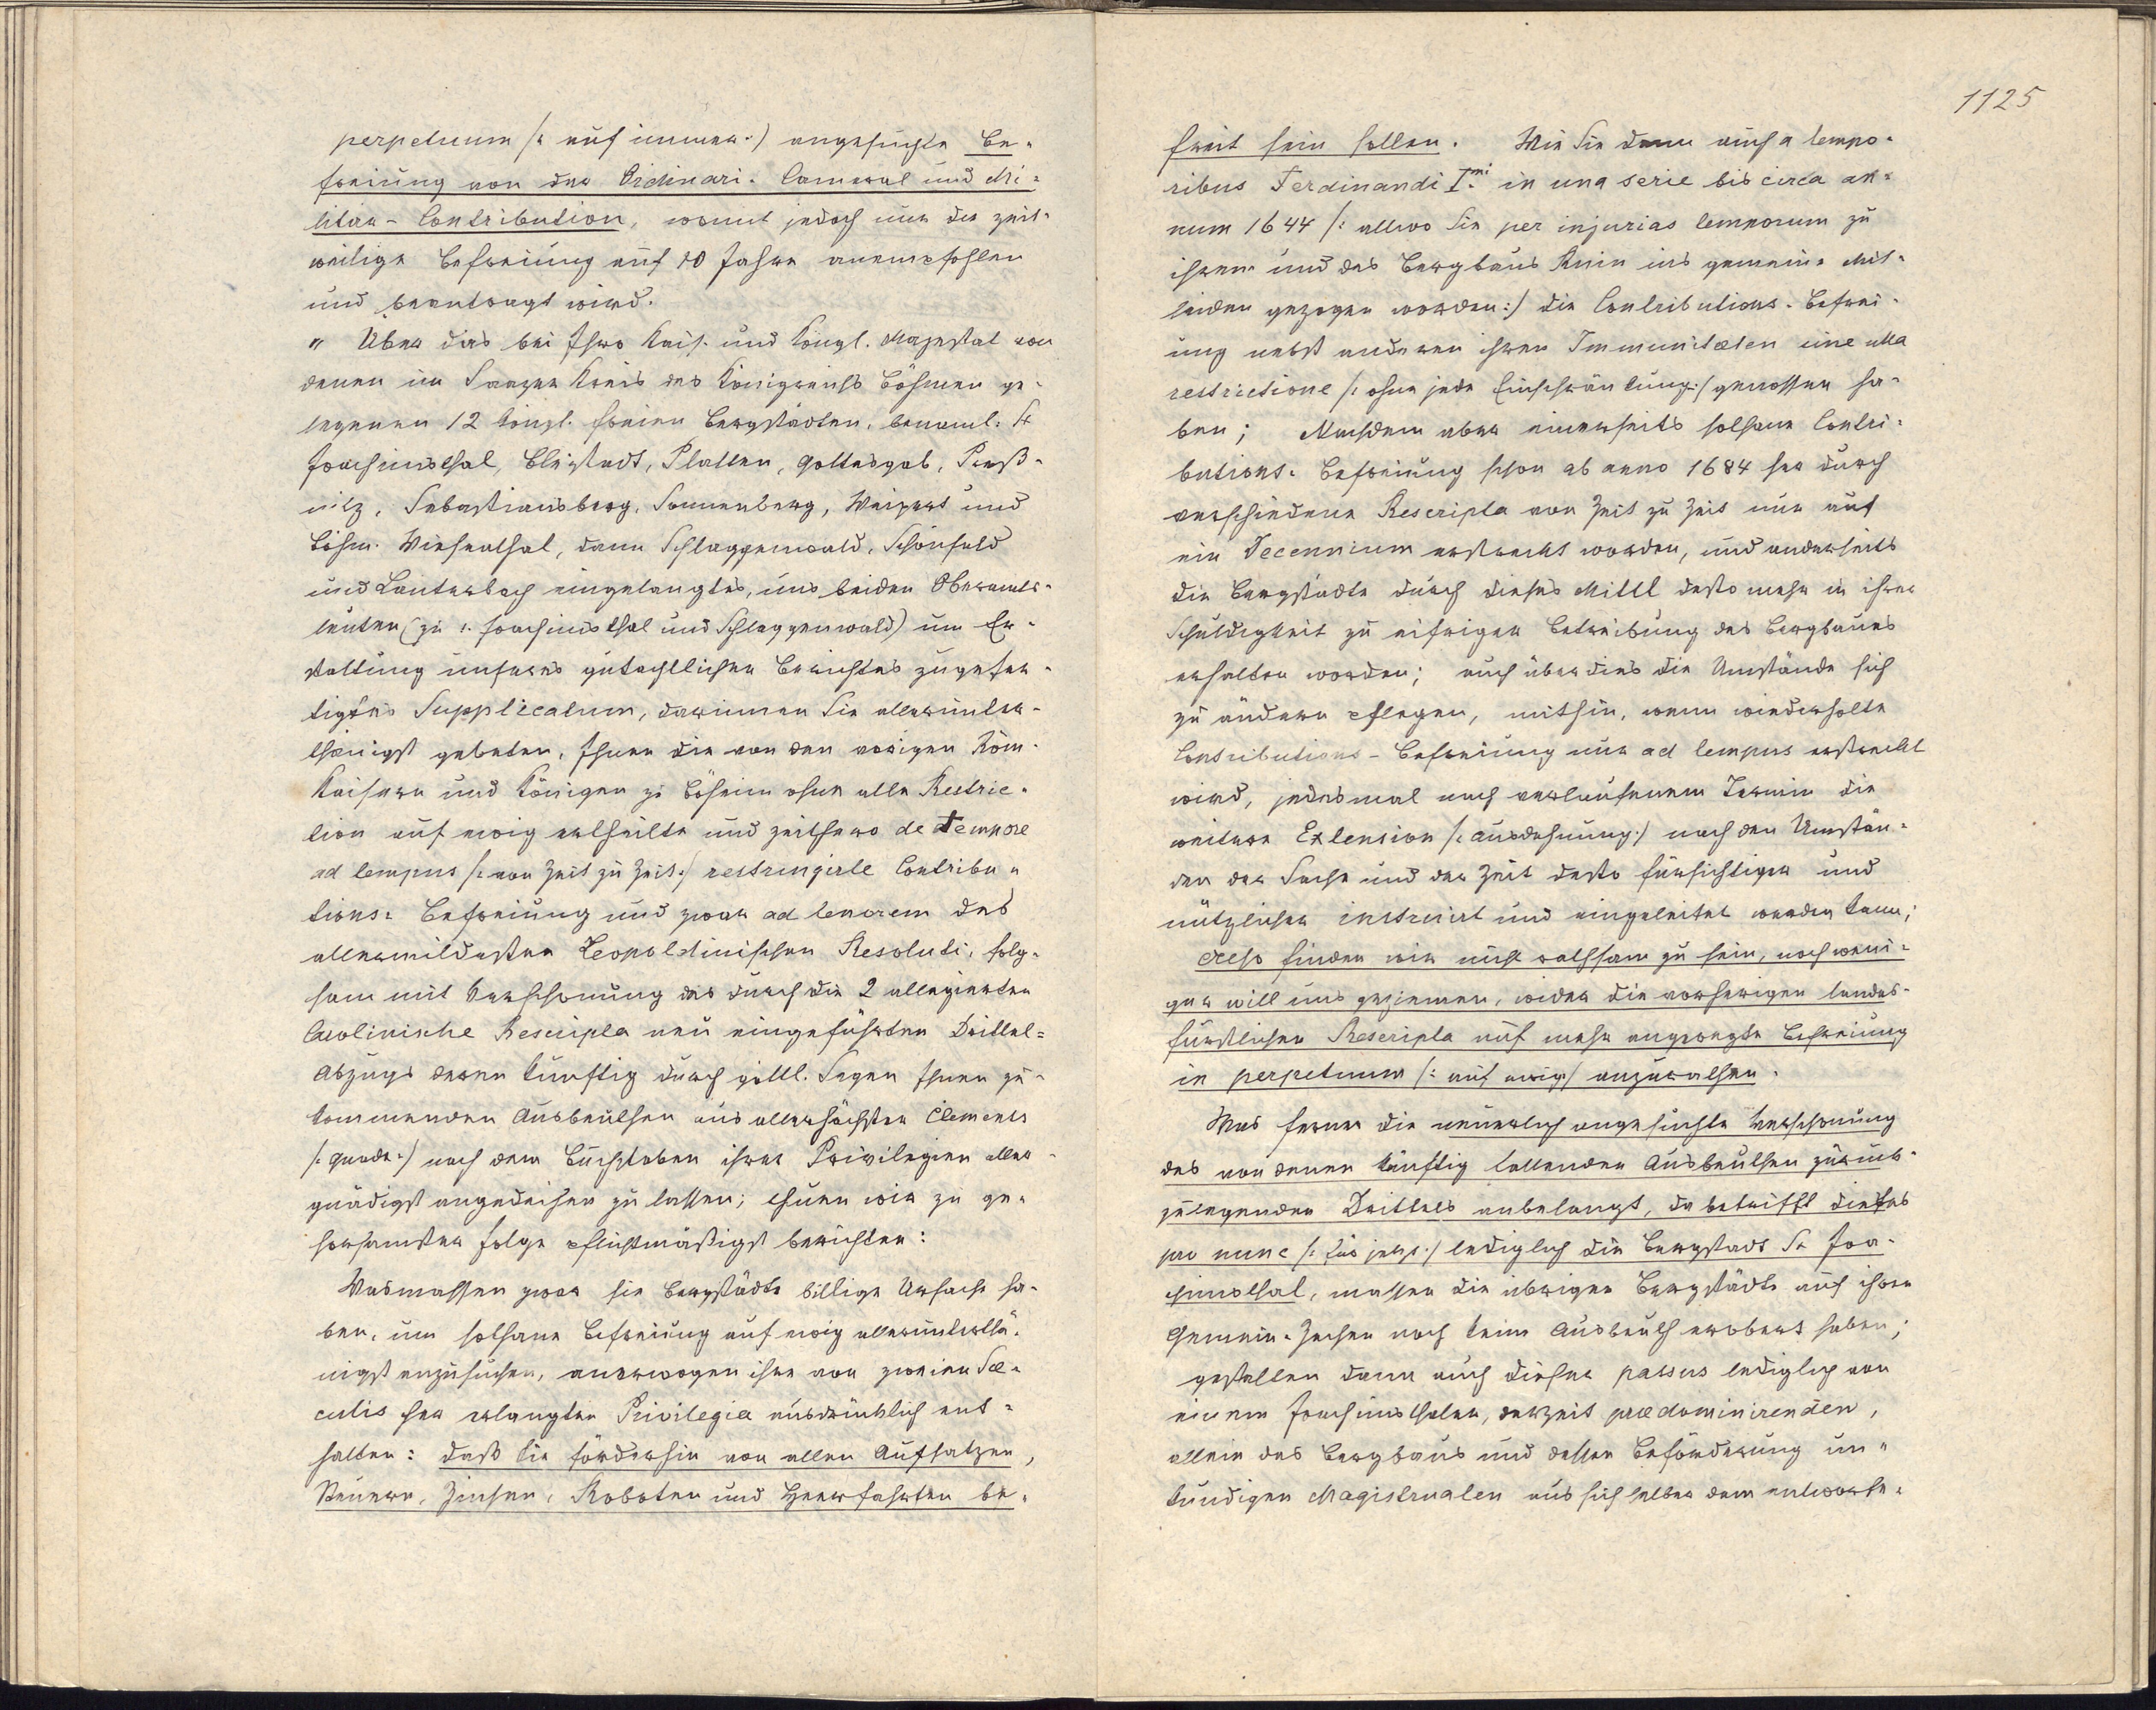 perpetuum /: auf immer :/ angesuchte Be-
freiung von der Ordinari- Cameral und Mi-
litär-Contribution, womit jedoch nur die zeit-
weilige Befreiung auf 10 Jahre anempfohlen
und beantragt wird.
" Über das bei Ihro Kais. und Königl. Majestät von
denen im Saazer Kreis des Königreichs Böhmen ge-
legenen 12 königl. freien Bergstädten, benanntl. St
Joachimsthal, Bleistadt, Platten, Gottesgab, Preß-
nitz, Sebastiansberg, Sonnenberg, Weipert und
Böhm. Wiesenthal, dann Schlaggenwald, Schönfeld
und Lauterbach eingelangtes, uns beiden Oberamts-
leuten (zu St. Joachimsthal und Schlaggenwald) um Er-
stattung unseres gutachtlichen Berichtes zugefer-
tigtes Supplicatum, darinnen Sie allerunter-
thänigst gebeten, Ihnen die von den vorigen Röm.
Kaisern und Königen zu Böheim ohne alle Restric-
tion auf ewig ertheilte und zeithero de tempore
ad tempus /: von Zeit zu Zeit :/ restringirte Contribu-
tions- Befreiung und zwar ad tenorem des
allermildesten Leopoldinischen Resoluti, folg-
sam mit Verschonung des durch die 2 allegierten
Carolinische Rescripta neu eingeführten Drittel-
Abzugs deren künftig durch göttl. Segen Ihnen zu-
kommenden Ausbeuthen aus allerhöchster Clemenz
/: Gnade :/ nach dem Buchstaben ihrer Privilegien aller-
gnädigst angedeihen zu lassen; thuen wir zu ge-
horsamster Folge pflichtmäßigst berichten:
Wasmassen zwar sie Bergstädte billige Ursache ha-
ben, um solhane Befreiung auf ewig allerunterthä-
nigst anzusuchen, anerwogen ihre von zweien Sæ-
culis her erlangten Privilegia ausdrücklich ent-
halten: daß sie förderhin von allen Aufsatzen,
Steuern, Zinsen, Roboten und Heerfahrten be-
1125
freit sein sollen. Wie Sie dann auch a tempo-
ribus Ferdinandi I.mi in una serie bis circa an-
num 1644 /: allwo Sie per injurias temporum zu
ihrem und des Bergbaus Ruin ins gemeine Mit-
leiden gezogen worden :/ die Contributions- Befrei-
ung nebst anderen ihren Immunitæten sine ulla
restrictione /: ohne jede Einschränkung :/ genossen ha-
ben; Nachdem aber einerseits solhane Contri-
butions- Befreiung schon ab anno 1684 her durch
verschiedene Rescripta von Zeit zu Zeit nur auf
ein Decennium erstreckt worden, und anderseits
die Bergstädte durch dieses Mittl desto mehr in ihrer
Schuldigkeit zu eifriger Betreibung des Bergbaues
erhalten worden; auch über dies die Umstände sich
zu ändern pflegen, mithin, wenn wiederholte
Contributions-Befreiung nur ad tempus erstreckt
wird, jedesmal nach verlaufenem Termin die
weitere Extension /: Ausdehnung :/ nach den Umstän-
den der Sache und der Zeit desto fürsichtiger und
nützlicher instruirt und eingeleitet werden kann;
Also finden wir nicht rathsam zu sein, noch weni-
ger will uns geziemen, wider die vorherigen landes-
fürstlichen Rescripta auf mehr angeregte Befreiung
in perpetuum /: auf ewig :/ anzurathen.
Was ferner die neuerlich angesuchte Verschonung
des von denen künftig fallenden Ausbeuthen zurück-
zulegenden Drittels anbelangt, da betrifft dieses
pro nunc /: für jetzt :/ lediglich die Bergstadt St Joa-
chimsthal, massen die übrigen Bergstädte auf ihren
Gemein-Zechen noch keine Ausbeuth erobert haben;
gestalten dann auch dieser passus lediglich von
einem Joachimsthaler, derzeit prædominirenden,
allein des Bergbaus und dessen Beförderung un-
kundigen Magistrualen aus sich selber dem entworfe-